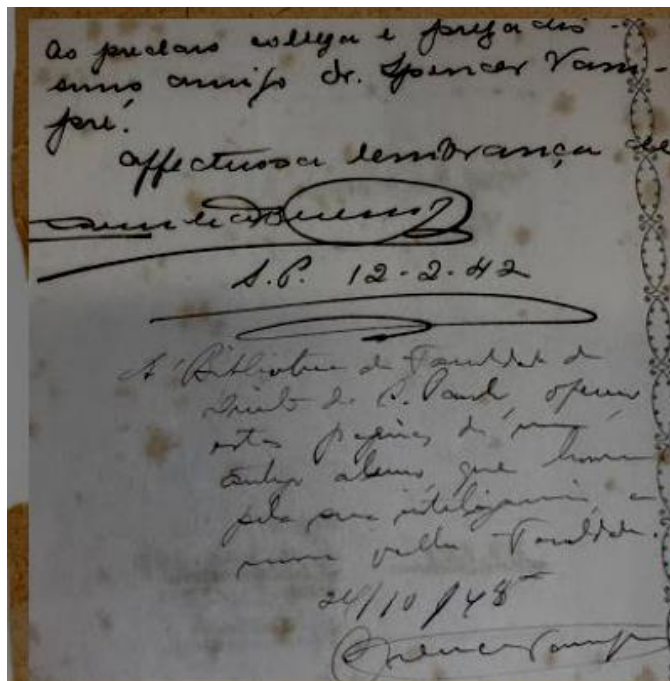 Ao preclaro collega e prezadis-
simo amigo dr. Spencer Vam-
pré.
affectuosa lembrança de
Bueno
S.P. 12-2-42
A' Bibliotheca da Faculdade de
Direito de S. Paulo, offereço
estas paginas de meu
antigo alumno, que honra
pela sua intelligencia, a
nossa velha Faculdade.
24/10/45
Spencer Vampré